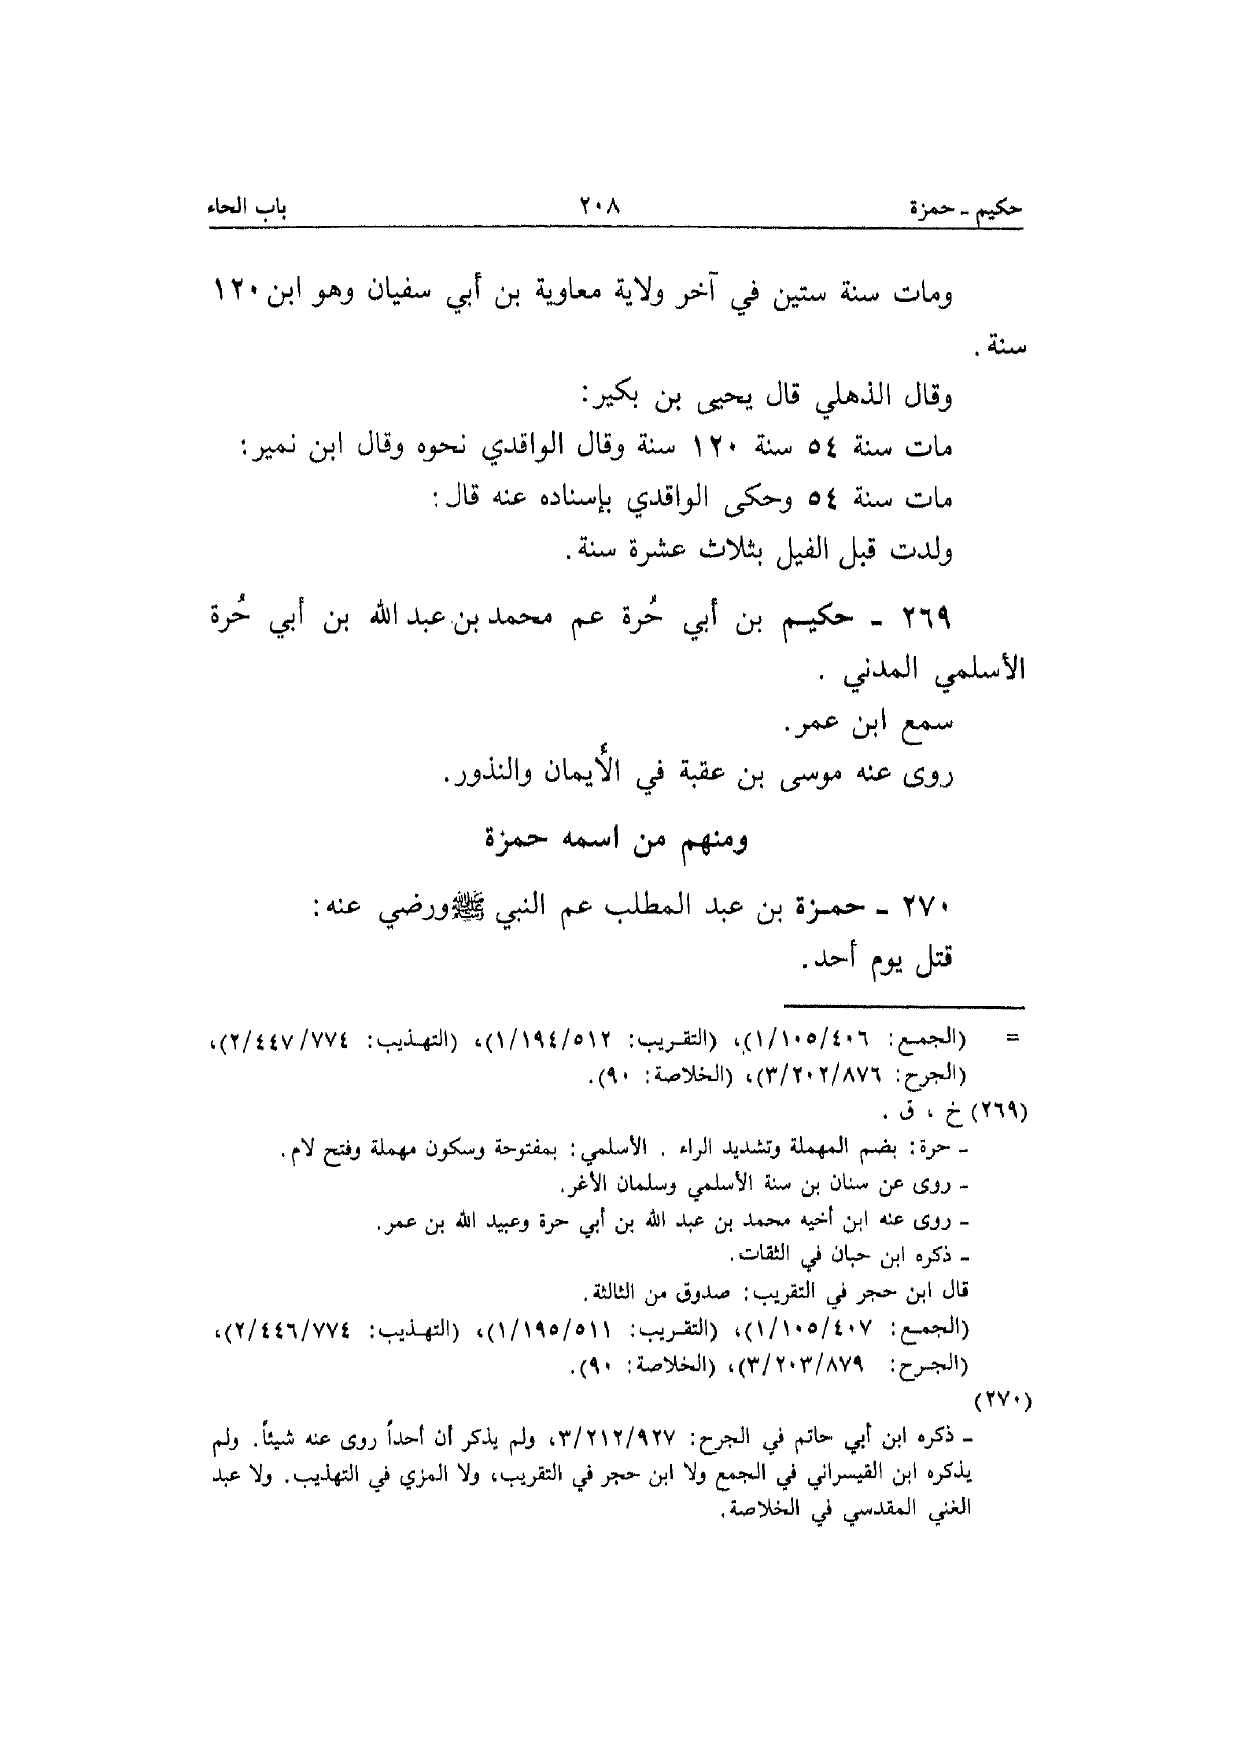 حكيم ـ حمزة ٢٠٨ باب الحاء
ومات سنة ستين في آخر ولاية معاوية بن أبي سفيان وهو ابن ١٢٠
سنة .
وقال الذهلي قال يحيى بن بكير:
مات سنة ٥٤ سنة ١٢٠ سنة وقال الواقدي نحوه وقال ابن نمير:
مات سنة ٥٤ وحكى الواقدي بإسناده عنه قال:
ولدت قبل الفيل بثلاث عشرة سنة.
٢٦٩ ـ حكيم بن أبي حُرة عم محمد بن عبد الله بن أبي حُرة
الأسلمي المدني .
سمع ابن عمر.
روى عنه موسى بن عقبة في الأَيمان والنذور.
ومنهم من اسمه حمزة
٢٧٠ ـ حمزة بن عبد المطلب عم النبي ﷺ ورضي عنه:
قتل يوم أحد.
= (الجمع: ١/١٠٥/٤٠٦)، (التقريب: ١/١٩٤/٥١٢)، (التهذيب: ٢/٤٤٧/٧٧٤)،
(الجرح: ٣/٢٠٢/٨٧٦)، (الخلاصة: ٩٠).
(٢٦٩) خ ، ق .
ـ حرة: بضم المهملة وتشديد الراء . الأسلمي: بمفتوحة وسكون مهملة وفتح لام.
ـ روى عن سنان بن سنة الأسلمي وسلمان الأغر.
ـ روى عنه ابن أخيه محمد بن عبد الله بن أبي حرة وعبيد الله بن عمر.
ـ ذكره ابن حبان في الثقات.
قال ابن حجر في التقريب: صدوق من الثالثة.
(الجمع: ١/١٠٥/٤٠٧)، (التقريب: ١/١٩٥/٥١١)، (التهذيب: ٢/٤٤٦/٧٧٤)،
(الجرح: ٣/٢٠٣/٨٧٩)، (الخلاصة: ٩٠).
(٢٧٠)
ـ ذكره ابن أبي حاتم في الجرح: ٣/٢١٢/٩٢٧، ولم يذكر أن أحداً روى عنه شيئاً. ولم
يذكره ابن القيسراني في الجمع ولا ابن حجر في التقريب، ولا المزي في التهذيب. ولا عبد
الغني المقدسي في الخلاصة.